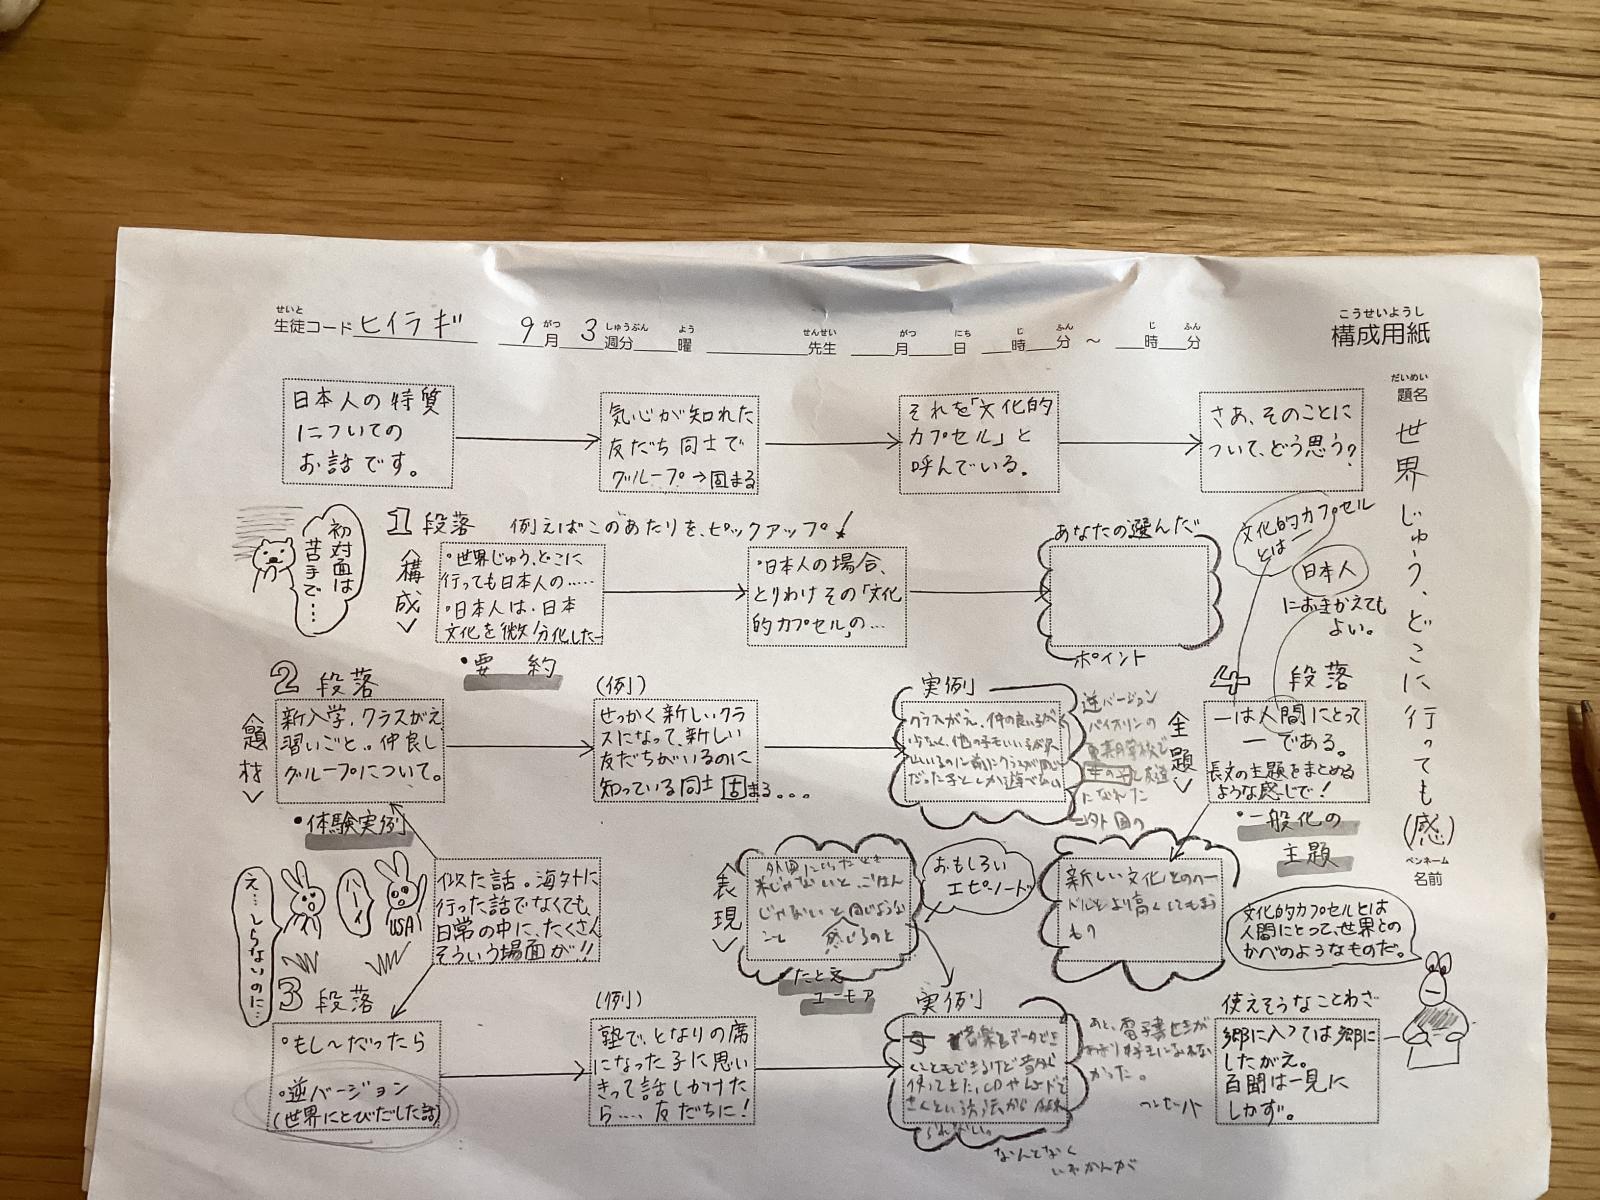 せいと
生徒コード ヒイラギ
9月3週分 曜 先生 月 日 時 分 ～ 時 分
がつ しゅうぶん よう せんせい がつ にち じ ふん じ ふん
こうせいようし
構成用紙
だいめい
題名
世界じゅう、どこに行っても(感)
ペンネーム
名前
日本人の特質
についての
お話です。
気心が知れた
友だち同士で
グループ→固まる
それを「文化的
カプセル」と
呼んでいる。
さあ、そのことに
ついて、どう思う?
初対面は
苦手で…
1段落 例えばこのあたりを、ピックアップ!
<構成>
・世界じゅう、どこに
行っても日本人の……
・日本人は、日本
文化を微分化した―
・要約
・日本人の場合、
とりわけその「文化
的カプセル」の…
あなたの選んだ
ポイント
文化的カプセル
とは
日本人
におきかえても
よい。
2段落
<題材>
新入学、クラスがえ
習いごと。。仲良し
グループについて。
・体験実例
(例)
せっかく新しいクラ
スになって、新しい
友だちがいるのに
知っている同士固まる...
実例
クラスがえ、仲の良い子が
少なく、他の子もいい子が沢
山いるのに前にクラスが同じ
だった子としか遊べない
逆バージョン
バイオリンの
になれた
外国の
4段落
<主題>
―は人間にとって
―である。
長文の主題をまとめる
ような感じで!
・一般化の
主題
え…しらないのに…
ハーイ
USA
似た話。海外に
行った話でなくても、
日常の中に、たくさん
そういう場面が!!
<表現>
米じゃないと、ごはん
じゃないと同じような
感じるのと
たとえ
ユーモア
おもしろい
エピソード
新しい文化とのハー
ドルをより高くしてしまう
もの
文化的カプセルとは
人間にとって、世界との
かべのようなものだ。
3段落
・もし～だったら
・逆バージョン
(世界にとびだした話)
(例)
塾で、となりの席
になった子に思い
きって話しかけた
ら…、友だちに!
実例
音楽をデータでき
くこともできるけど昔から
使ってきた、CDや
きくという方法から
られない。
あと、電子書せきが
あまり好きになれな
かった。
コンセント
なんとなく
いわかんが
使えそうなことわざ
郷に入っては郷に
したがえ。
百聞は一見に
しかず。